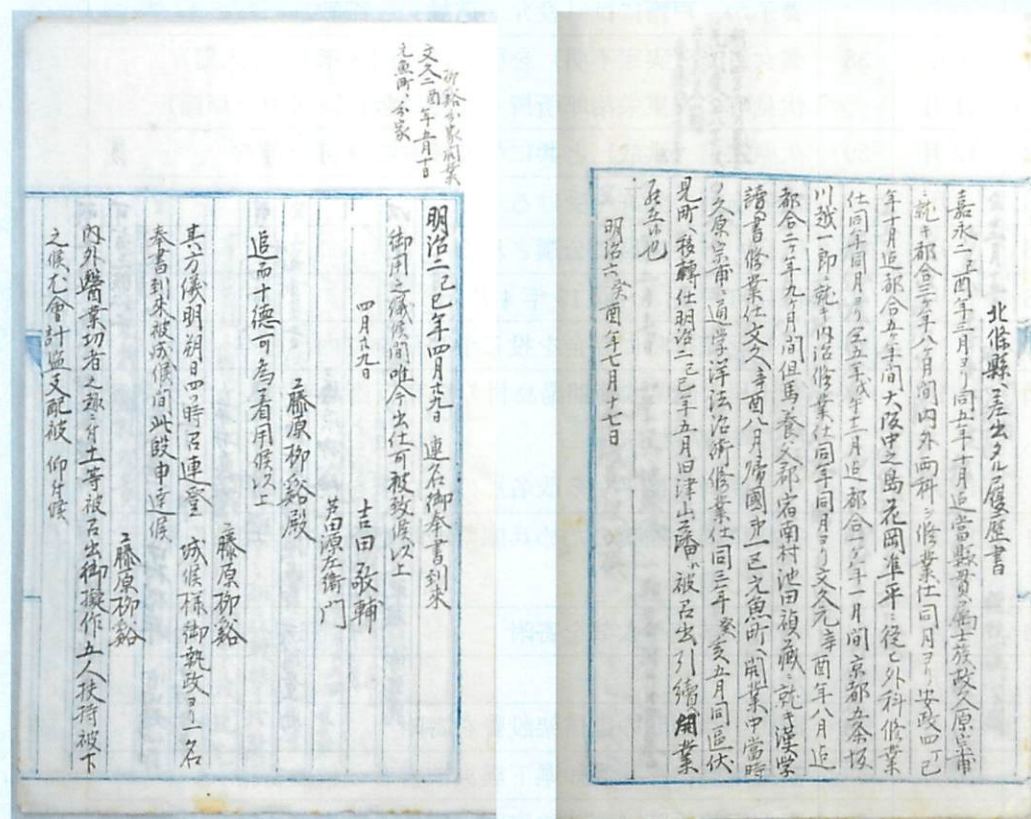 北條縣ヘ差出タル履歴書
嘉永二己酉年三月ヨリ同五年十月迠當縣貫属士族久原宗甫
就キ都合三ケ年八ケ月間内外両科ヲ修業仕同月ヨリ安政四丁巳
年十月迠都合五ケ年間大阪中之島花岡準平ニ従ヒ外科修業
仕同年同月ヨリ五年十二月迠都合一ケ年一月間京都五条坂
川越一郎ニ就キ内治修業仕同年同月ヨリ文久元辛酉年八月迠
都合二ケ年九ケ月間但馬養父郡宿南村池田禎蔵ニ就キ漢学
讀書修業仕文久元辛酉八月帰國 元魚町ヘ開業中當時
久原宗甫ニ通学洋法治術修業仕同三年癸亥五月同區伏
見町ヘ移轉仕明治二己巳年五月旧津山藩ヘ被召出引續開業
在
明治六癸酉年七月十七日
柳谿分家開業
文久二酉年五月十日
元魚町ヘ分家
明治二己巳年四月廿九日 連名御奉書到来
御用之儀候間唯今出仕可被致候以上
四月廿九日
吉田敬輔
芦田源左衛門
藤原柳谿殿
追而十徳可為着用候以上
藤原柳谿
其方儀明朔日四ツ時召連登 城候様御執政ヨリ一名
奉書到来被成候間此段申達候
藤原柳谿
内外醫業功者之趣ニ付士等被召出御擬作五人扶持被下
之候尤會計監支配被 仰付候